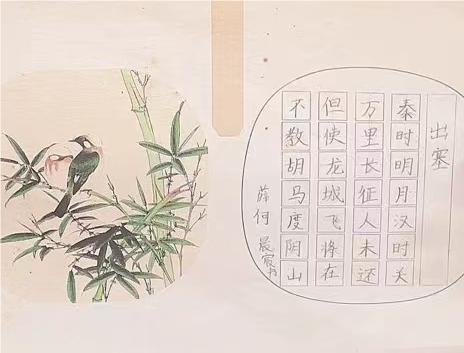 出塞
秦时明月汉时关
万里长征人未还
但使龙城飞将在
不教胡马度阴山
薛何晨宸书